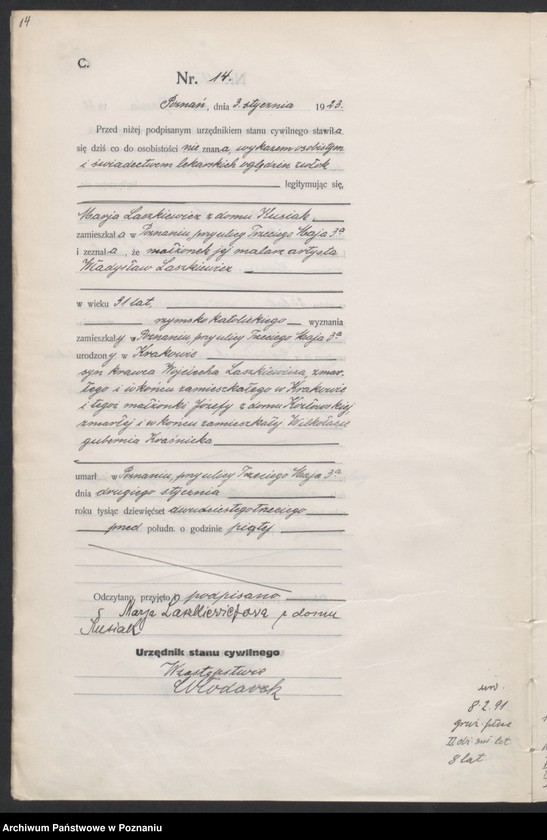 14
C.
Nr. 14.
Poznań, dnia 3. stycznia 1923.
Przed niżej podpisanym urzędnikiem stanu cywilnego stawiła
się dziś co do osobistości nie znana, wykazem osobistym
i świadectwem lekarskich oględzin zwłok
legitymując się,
Marja Laszkiewicz z domu Kusiak,
zamieszkała w Poznaniu, przy ulicy Trzeciego Maja 3a
i zeznała, że małżonek jej malarz artysta
Władysław Laszkiewicz
w wieku 31 lat,
rzymsko katolickiego wyznania
zamieszkały w Poznaniu przy ulicy Trzeciego Maja 3a
urodzony w Krakowie
syn krawca Wojciecha Laszkiewicza, zmar-
łego i w końcu zamieszkałego w Krakowie
i tegoż małżonki Józefy z domu Kozłowskiej
zmarłej i w końcu zamieszkałej
gubernia Kraśnicka
umarł w Poznaniu, przy ulicy Trzeciego Maja 3a
dnia drugiego stycznia
roku tysiąc dziewięćset dwudziestego trzeciego
przed połudn. o godzinie piątej
Odczytano, przyjęto i podpisano
Marja Laszkiewiczowa z domu
Kusiak
Urzędnik stanu cywilnego
W zastępstwie
Włodarek
ur.
8.2.91
II
8 lat
Archiwum Państwowe w Poznaniu